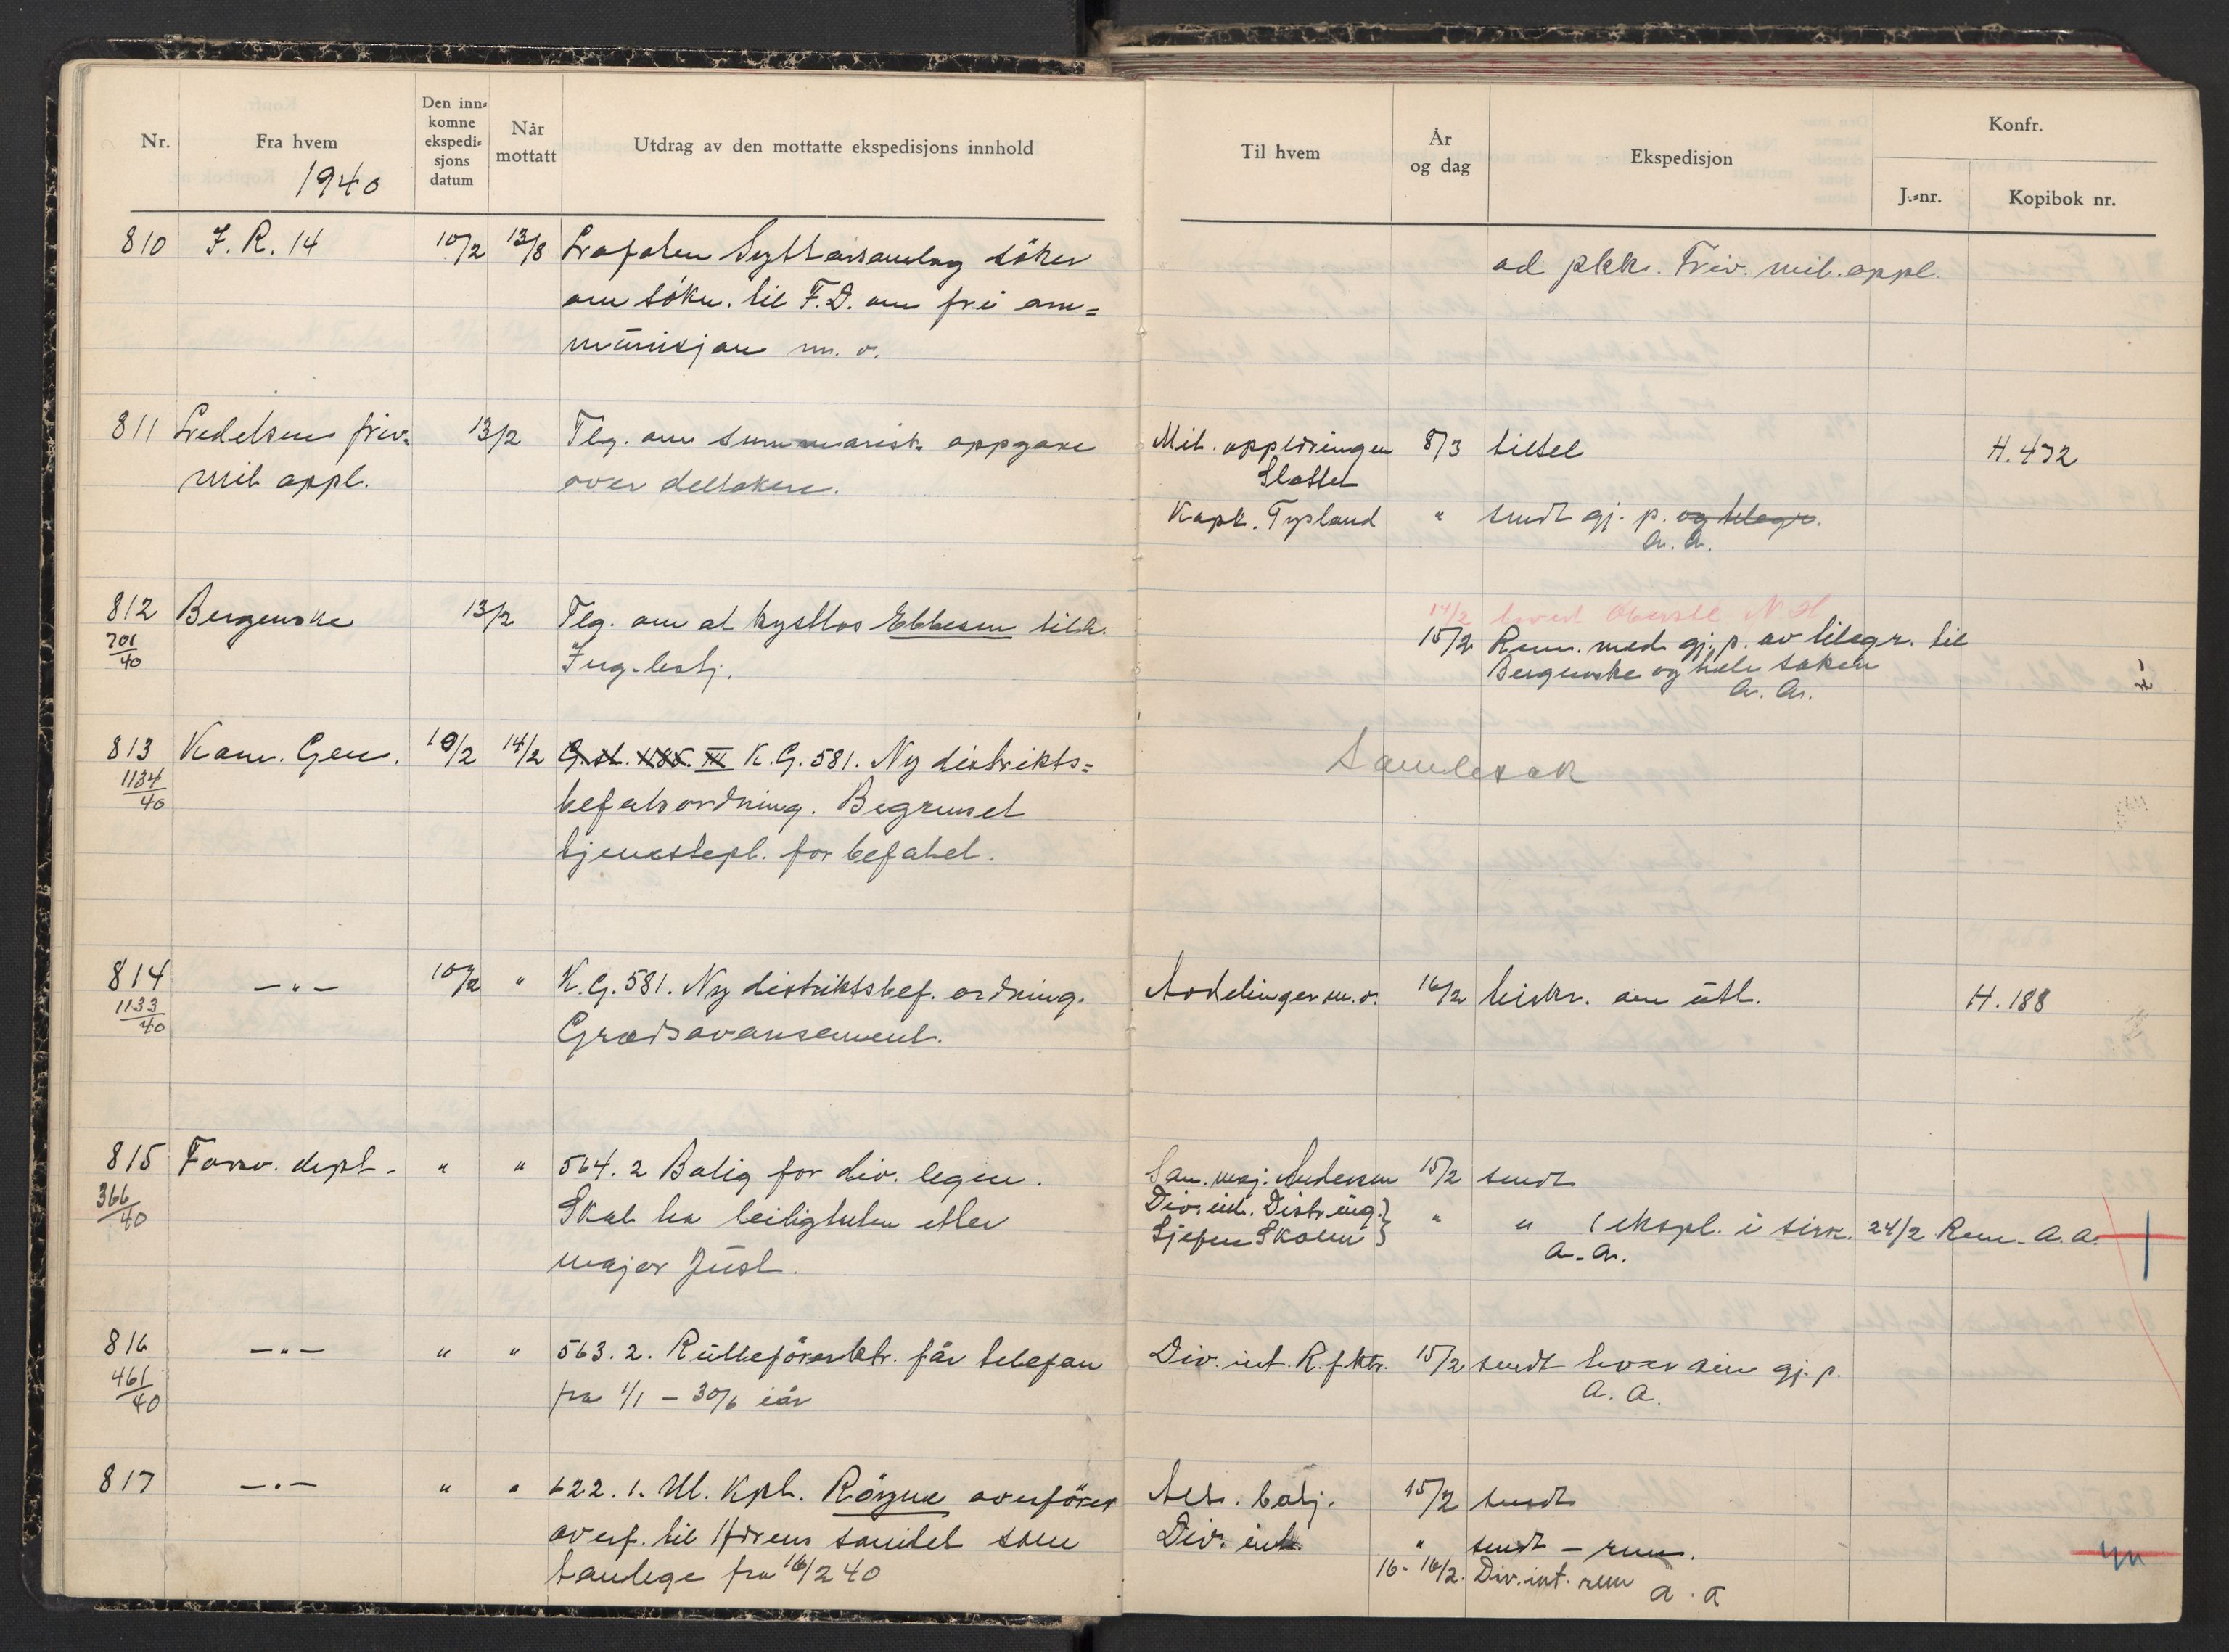 Nr.
Fra hvem
1940
Den inn-
komne
ekspedi-
sjons
datum
Når
mottatt
Utdrag av den mottatte ekspedisjons innhold
810 I. R. 14 10/2 13/8 skytterasamlag söker
om sökn. til F.D. om fri am=
munisjon m. v.
811 Ledelsens friv. 13/2 Tlg. om summarisk oppgave
mil. oppl. over deltakere.
812 Bergenske 13/2 Tlg. om at Ebbesen tilk.
701/40 Ing. batj.
813 Kom. Gen. 10/2 14/2 K.G. 581. Ny distrikts=
1134/40 befalsordning. Begrenset
tjenestepl. for befalet.
814 — " — 10/2 " K.G. 581. Ny distriktsbef. ordning.
1133/40 Gradsavansement.
815 Forsv. dept. " " 564. 2 Bolig for div. legen.
366/40 Skal ha leiligheten etter
major Just.
816 — " — " " 563. 2. Rulleförerktr. får telefon
461/40 fra 1/1 – 30/6 iår
817 — " — " " 622. 1. Ul. Kpt. overförer
overf. til Hærens sanitet som
tanlege fra 16/2 40
Til hvem
År
og dag
Ekspedisjon
Konfr.
J.-nr.
Kopibok nr.
ad pkk. Friv. mil. oppl.
Mil. opplæringen 8/3 tilsel H. 432
Slottet
Kapt. Tysland " sendt gj. p. og telegr.
a. a.
14/2 Oberstl N H
15/2 Rem. med gj. p. av telegr. til
Bergenske og hele saken
a. a.
Samlesak
Avdelinger m. v. 16/2 tilskr. om utt. H. 188
San. maj. Andersen 15/2 sendt
Div. int. Distr. ing. }
Sjefen Skolen } " " (ekspl. i sirk. 24/2 Rem. a. a.
a. a.
Div. int. R. f. ktr. 15/2 sendt hver sin gj. p.
a. a.
batj. 15/2 sendt
Div. int. " sendt – rem.
16- 16/2. Div. int. rem a. a